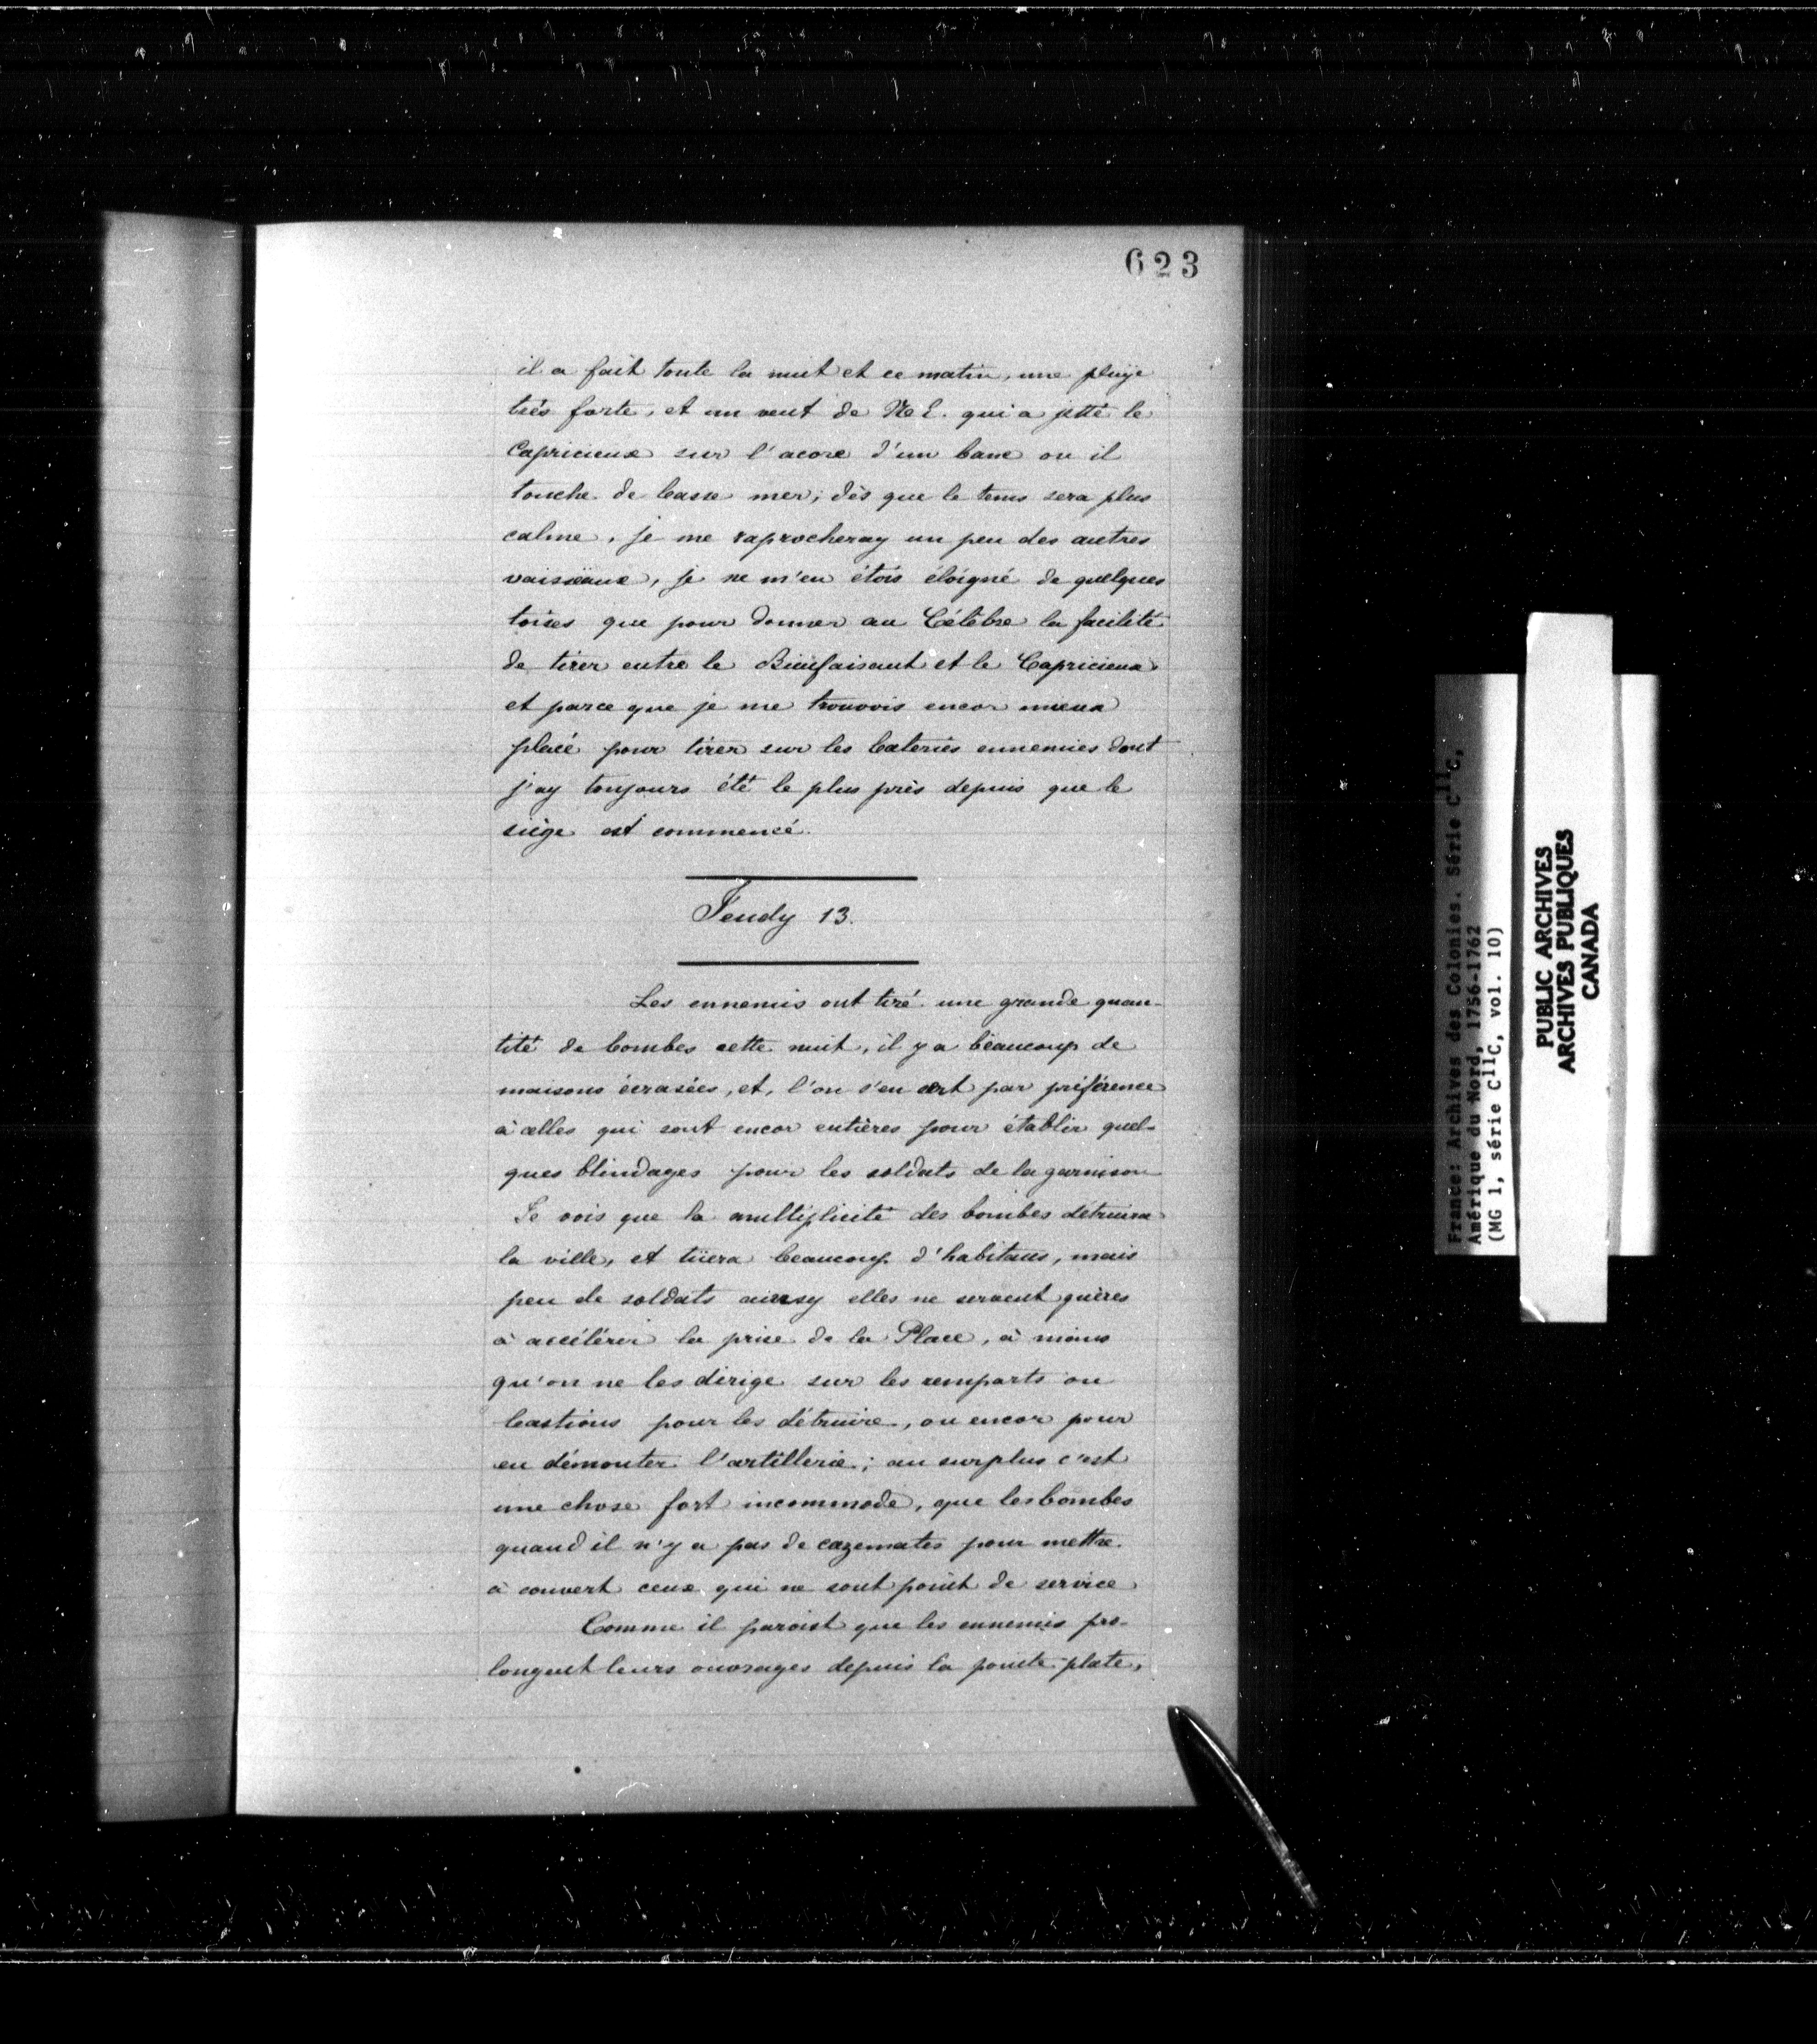 623
il a fait toute la nuit et ce matin, une pluye
très forte, et un vent de N E. qui a jetté le
Capricieux sur l'acore d'un banc ou il
touche de basse mer; dès que le tems sera plus
calme, je me raprocheray un peu des autres
vaisseaux, je ne m'en étois éloigné de quelques
toises que pour donner au Célèbre la facilité
de tirer entre le Bienfaisant et le Capricieux
et parce que je me trouvois encor mieux
placé pour tirer sur les bateries ennemies dont
j'ay toujours été le plus près depuis que le
siège est commencé.
Jeudy 13.
Les ennemis ont tiré une grande quan-
tité de bombes cette nuit, il y a beaucoup de
maisons écrasées, et, l'on s'en sert par préférence
à celles qui sont encor entières pour établir quel-
ques blindages pour les soldats de la garnison
Je vois que la multiplicité des bombes détruira
la ville, et tüera beaucoup d'habitans, mais
peu de soldats ainsy elles ne servent guères
à accélérer la prise de la Place, à moins
qu'on ne les dirige sur les remparts ou
bastions pour les détruire, ou encor pour
en démonter l'artillerie; au surplus c'est
une chose fort incommode, que les bombes
quand il n'y a pas de cazemates pour mettre
à couvert ceux qui ne sont point de service
Comme il paroist que les ennemis pro-
longent leurs ouvrages depuis la pointe plate,
France: Archives des Colonies. Série C11C,
Amérique du Nord, 1756-1762
(MG 1, série C11C, vol. 10)
PUBLIC ARCHIVES
ARCHIVES PUBLIQUES
CANADA